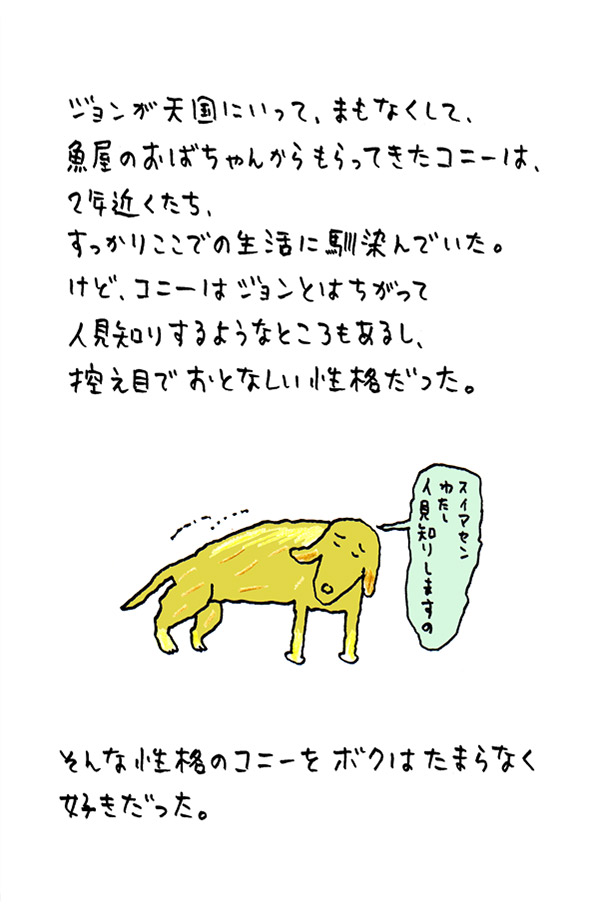 ジョンが天国にいって、まもなくして、
魚屋のおばちゃんからもらってきたコニーは、
2年近くたち、
すっかりここでの生活に馴染んでいた。
けど、コニーはジョンとはちがって
人見知りするようなところもあるし、
控え目でおとなしい性格だった。
スイマセン
わたし
人見知りしますの
そんな性格のコニーをボクはたまらなく
好きだった。